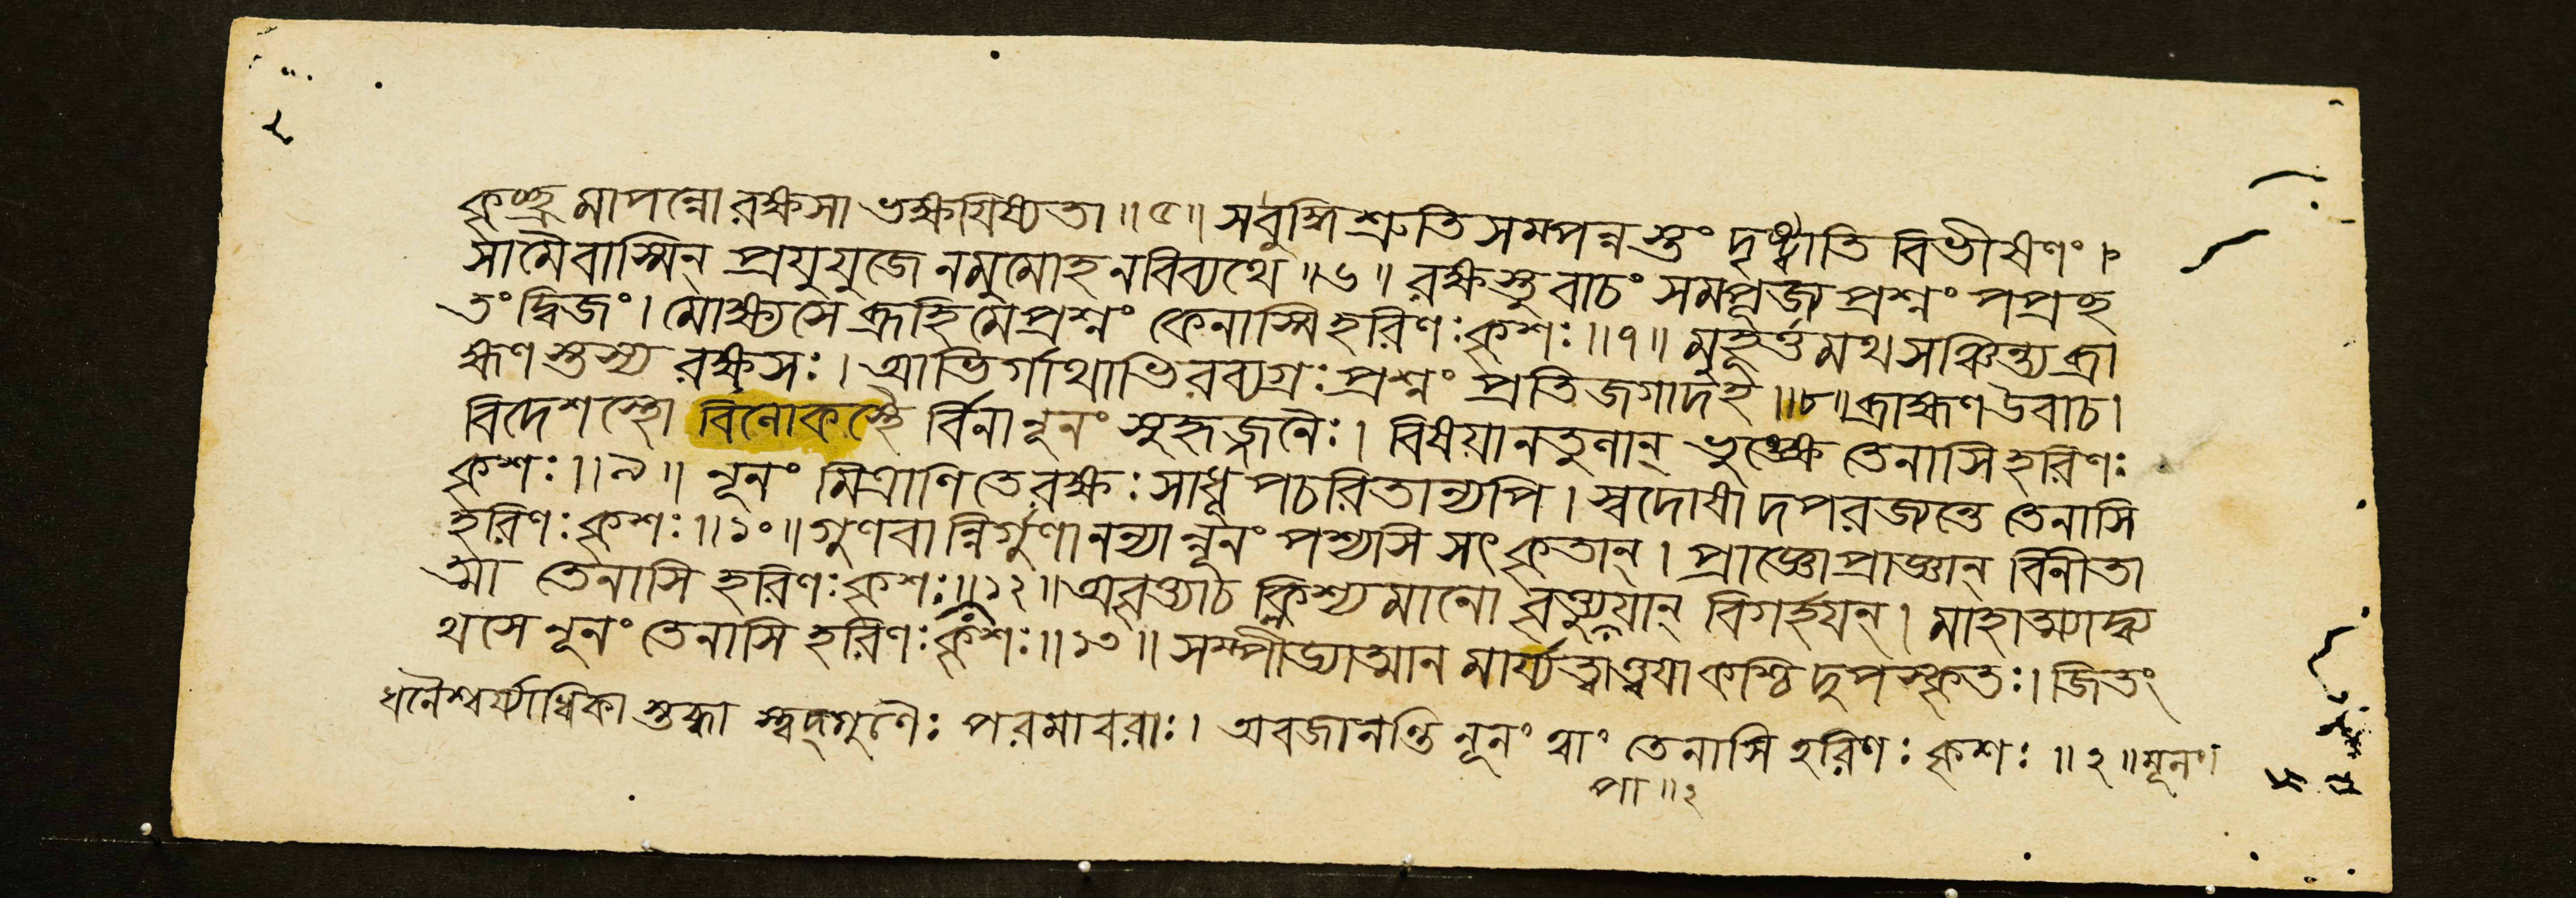 কৃচ্ছ্রমাপন্নো রক্ষসা ভক্ষয়িষ্যতা ॥ ৫ ॥ সবুদ্ধিশ্রুতিসমপন্নস্তং দৃষ্ট্বাতিবিভীষণং ।
সামৈবাস্মিন্ প্রযুযুজে নমুমোহ নবিব্যথে ॥ ৬ ॥ রক্ষস্তু বাচং সমপূজ্য প্রশ্নং পপ্রছ
তংদ্বিজং । মোক্ষ্যসে ব্রূহিমেপ্রশ্নং কেনাস্মি হরিণঃ কৃশঃ ॥ ৭ ॥ মুহূর্ত্তমথ সঞ্চিন্ত্য ব্রা
হ্মণস্তস্য রক্ষসঃ । আভির্গাথাভিরব্যগ্রঃ প্রশ্নং প্রতিজগাদহ ॥ ৮ ॥ ব্রাহ্মণ উবাচ ।
বিদেশস্থো বিনোকস্থৈ র্বিনা নূনং সুহৃজ্জনৈঃ । বিষয়ানতুণান্ ভুঙ্ক্ষে তেনাসি হরিণঃ
কৃশঃ ॥ ৯ ॥ নূনং মিত্রাণি তে রক্ষঃ সাধূপচরিতান্যপি । স্বদোষাদপরজ্যন্তে তেনাসি
হরিণঃ কৃশঃ ॥ ১০ ॥ গুণবান্নির্গুণানন্যান্নূনং পশ্যসি সৎকৃতান্ । প্রাজ্ঞোপ্রাজ্ঞান্ বিনীতা
ত্মা তেনাসি হরিণঃ কৃশঃ ॥ ১২ ॥ অবৃত্ত্যাচ ক্লিশ্যমানো বৃত্ত্যুপায়ান্ বিগর্হয়ন্ । মাহাত্ম্যাদ্ব্য
থসে নূনং তেনাসি হরিণঃ কৃশঃ ॥ ১৩ ॥ সম্পীড্যাত্মানমার্য্যত্বাত্ত্বয়া কশ্চিদুপস্কৃতঃ । জিতং
ধনৈশ্বর্য্যাধিকা স্তব্ধা স্ত্বদ্গুণৈঃ পরমাবরাঃ । অবজানন্তি নূনং ত্বাং তেনাসি হরিণঃ কৃশঃ ॥ ২ ॥ নূনং।
পা ॥ ২